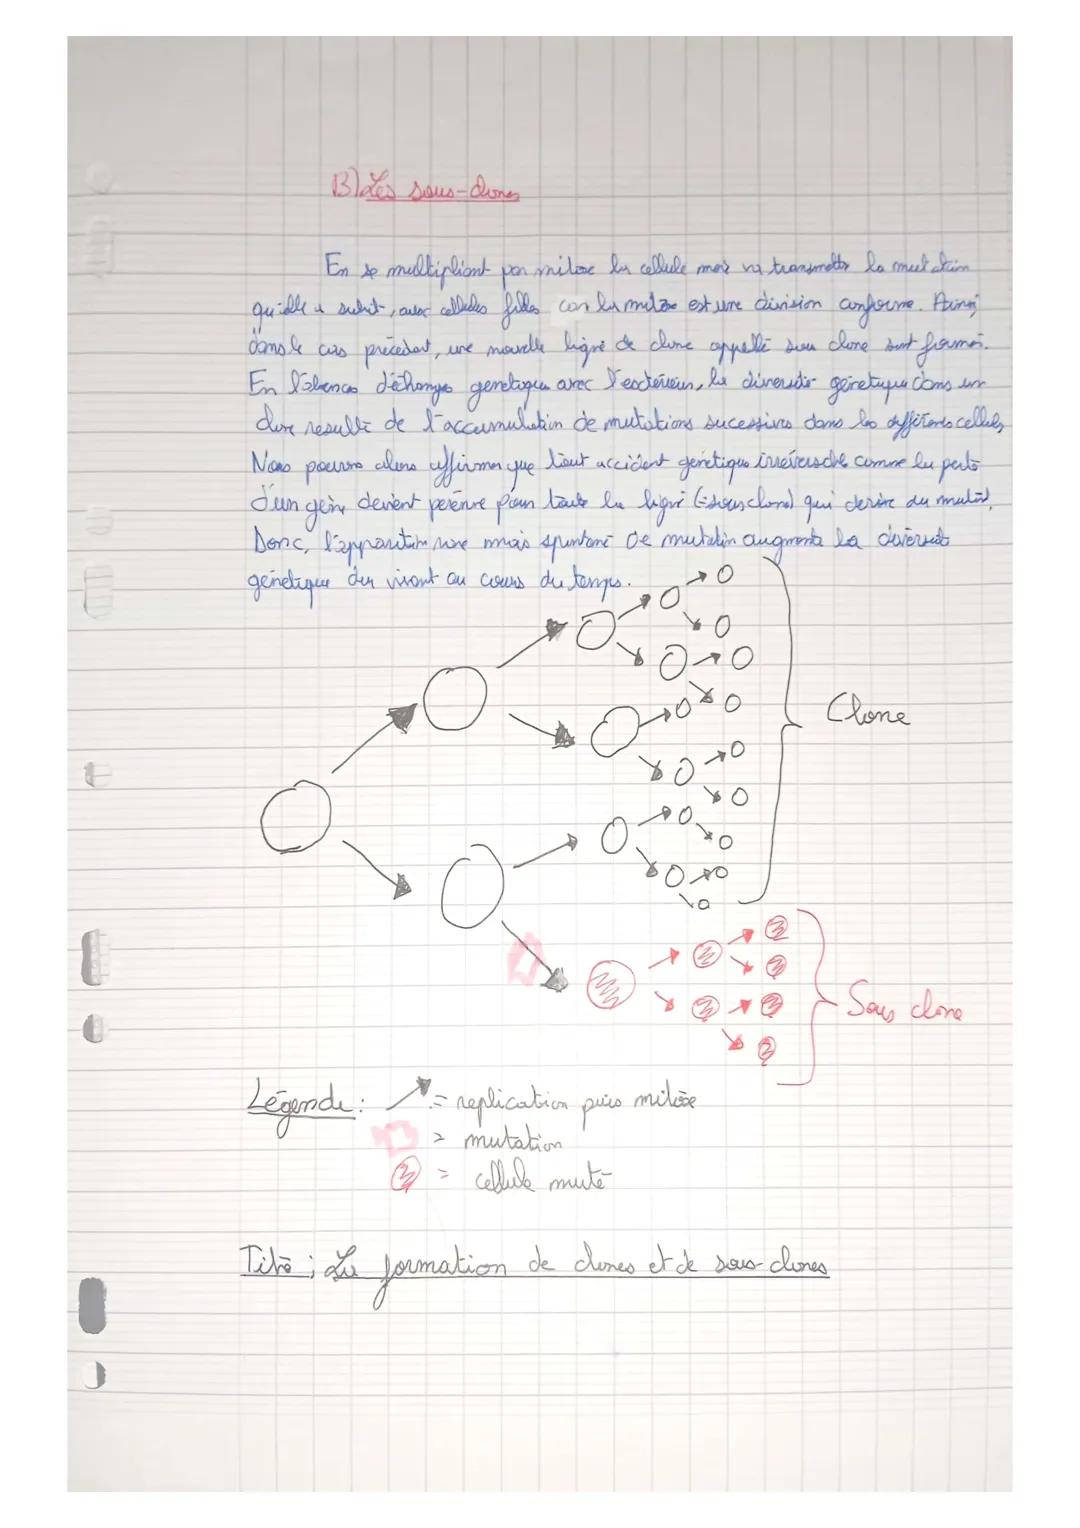 B) Les sous-clones
En se multipliant par mitose la cellule mère va transmettre la mutation
qu'elle a subit, aux cellules filles car la mitose est une division conforme. Ainsi,
dans le cas précédent, une nouvelle ligné de clone appellé sous clone sont formés.
En l'absence d'échanges genetiques avec l'extérieur, la diversité génétique dans un
clone resulte de l'accumulation de mutations sucessives dans les différentes cellules,
Nous pouvons alors affirmer que tout accident génétique irréversible comme la perte
d'un gène devient perénne pour toute la ligné (=sous clone) qui derive du mutant,
Donc, l'apparition rare mais spontané de mutation augmente la diversité
génétique du vivant au cours du temps.
Clone
Sous clone
Légende: = replication puis mitose
= mutation
= cellule muté
Titre ; La formation de clones et de sous-clones